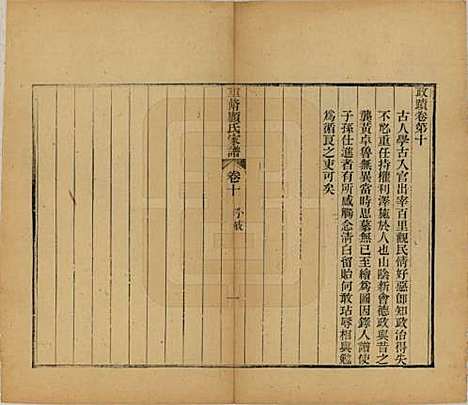 政蹟卷第十
古人學古入官出宰百里觀民情好惡卽知政治得失
不必重任持權利澤施於人也山陰新會德政與昔之
龔黃卓魯無異當時思慕無已至繪爲圖因鐸人譜使
子孫仕進者有所感觸念淸白留貽何敢玷辱相與勉
爲循良之吏可矣
重脩顧氏家譜
卷十
一